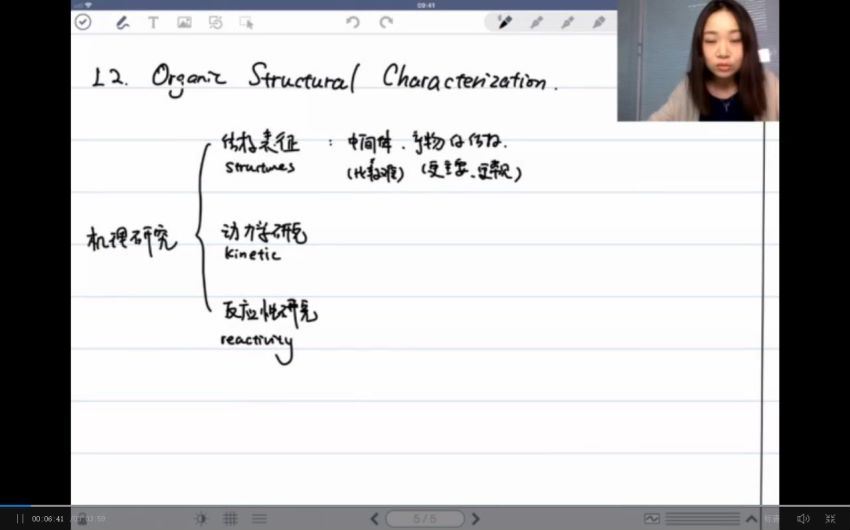 09:41
L2. Organic Structural Characterization.
结构表征 : 中间体. 产物的结构.
structures (比较难) (更重要、更常见)
机理研究
动力学研究
kinetic
反应性研究
reactivity
00:06:41
5/5